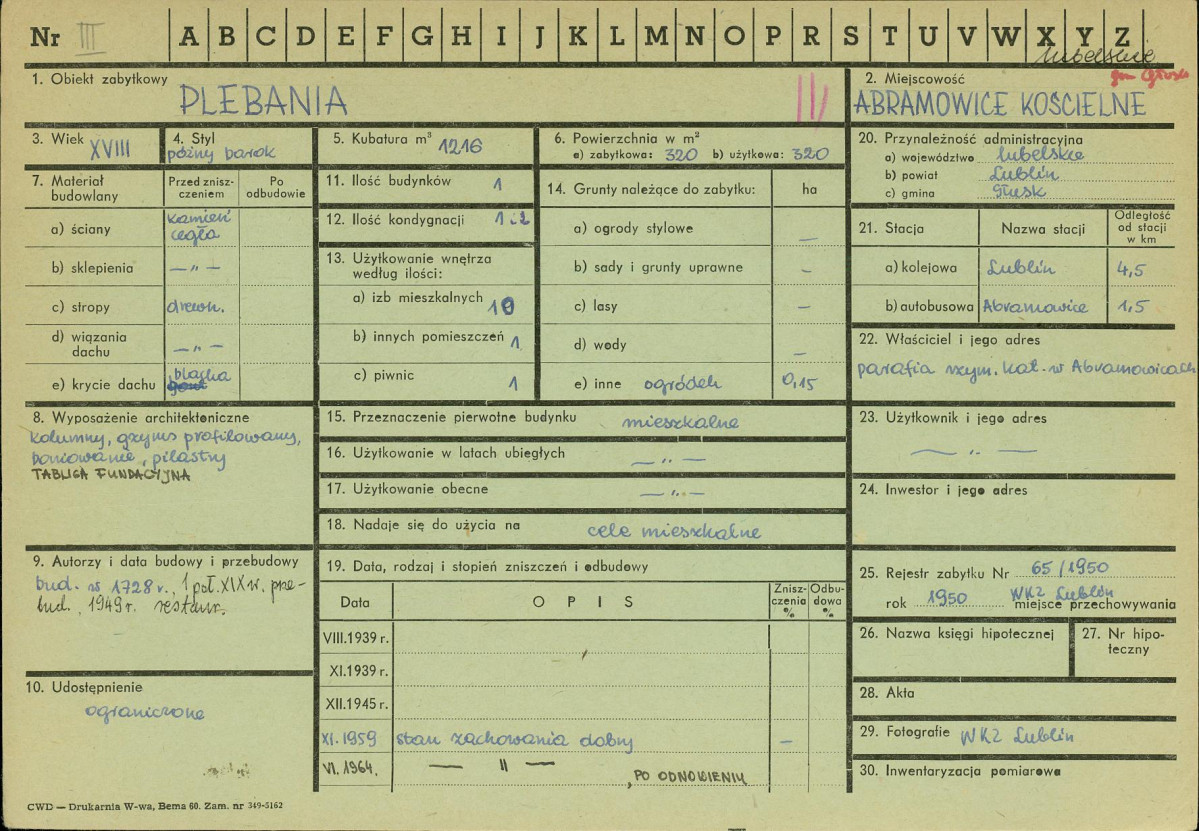 Nr III A B C D E F G H I J K L M N O P R S T U V W X Y Z
lubelskie
gm Głusk
1. Obiekt zabytkowy
PLEBANIA
III
2. Miejscowość
ABRAMOWICE KOŚCIELNE
3. Wiek XVIII
4. Styl
późny barok
5. Kubatura m³ 1216
6. Powierzchnia w m²
a) zabytkowa: 320 b) użytkowa: 320
20. Przynależność administracyjna
a) województwo lubelskie
b) powiat Lublin
c) gmina Głusk
7. Materiał budowlany
Przed zniszczeniem
Po odbudowie
a) ściany kamień cegła
b) sklepienia — " —
c) stropy drewn.
d) wiązania dachu — " —
e) krycie dachu blacha gont
11. Ilość budynków 1
12. Ilość kondygnacji 1 i 2
13. Użytkowanie wnętrza według ilości:
a) izb mieszkalnych 10
b) innych pomieszczeń 1
c) piwnic 1
14. Grunty należące do zabytku: ha
a) ogrody stylowe —
b) sady i grunty uprawne —
c) lasy —
d) wody —
e) inne ogródek 0,15
21. Stacja Nazwa stacji Odległość od stacji w km
a) kolejowa Lublin 4,5
b) autobusowa Abramowice 1,5
22. Właściciel i jego adres
parafia rzym. kat. w Abramowicach
8. Wyposażenie architektoniczne
kolumny, gzyms profilowany,
boniowanie, pilastry
TABLICA FUNDACYJNA
15. Przeznaczenie pierwotne budynku mieszkalne
16. Użytkowanie w latach ubiegłych — " —
17. Użytkowanie obecne — " —
18. Nadaje się do użycia na cele mieszkalne
23. Użytkownik i jego adres
— " —
24. Inwestor i jego adres
9. Autorzy i data budowy i przebudowy
bud. w 1728 r., 1 poł. XIX w. prze-
bud., 1949 r. restaur.
19. Data, rodzaj i stopień zniszczeń i odbudowy
Data OPIS Zniszczenia % Odbudowa %
VIII.1939 r.
XI.1939 r.
XII.1945 r.
XI.1959 stan zachowania dobry —
VI.1964. — " — , PO ODNOWIENIU
25. Rejestr zabytku Nr 65/1950
rok 1950 WKZ Lublin miejsce przechowywania
26. Nazwa księgi hipotecznej
27. Nr hipoteczny
10. Udostępnienie
ograniczone
28. Akta
29. Fotografie WKZ Lublin
30. Inwentaryzacja pomiarowa
CWD — Drukarnia W-wa, Bema 60. Zam. nr 349-5162